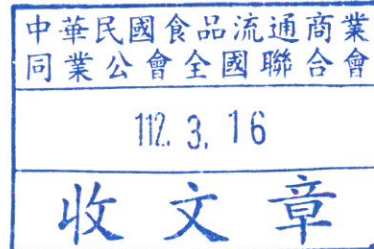 中華民國食品流通商業
同業公會全國聯合會
112. 3. 16
收文章